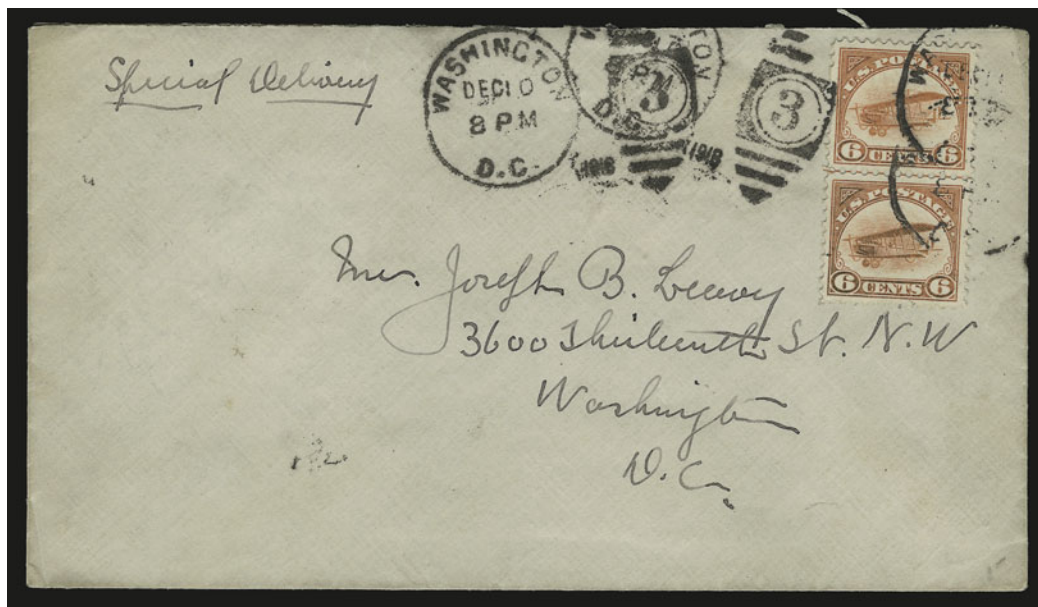 Special Delivery
WASHINGTON
DEC 10
8 PM
D.C.
1918
TON
D.C.
3
1918
3
U.S. POSTAGE
6 CENTS 6
U.S. POSTAGE
6 CENTS 6
Mrs. Joseph B.
3600 Thirteenth St. N.W
Washington
D.C.